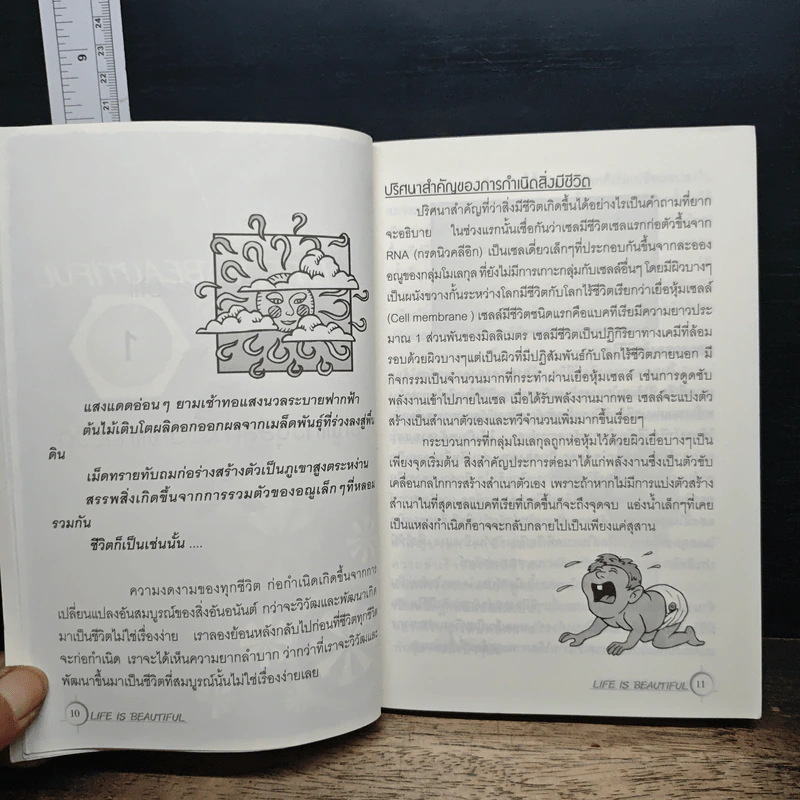 แสงแดดอ่อนๆ ยามเช้าทอแสงนวลระบายฟากฟ้า
ต้นไม้เติบโตผลิดอกออกผลจากเมล็ดพันธุ์ที่ร่วงลงสู่พื้น
ดิน
เม็ดทรายทับถมก่อร่างสร้างตัวเป็นภูเขาสูงตระหง่าน
สรรพสิ่งเกิดขึ้นจากการรวมตัวของอณูเล็กๆที่หลอม
รวมกัน
ชีวิตก็เป็นเช่นนั้น ....
ความงดงามของทุกชีวิต ก่อกำเนิดเกิดขึ้นจากการ
เปลี่ยนแปลงอันสมบูรณ์ของสิ่งอันอนันต์ กว่าจะวิวัฒและพัฒนาเกิด
มาเป็นชีวิตไม่ใช่เรื่องง่าย เราลองย้อนหลังกลับไปก่อนที่ชีวิตทุกชีวิต
จะก่อกำเนิด เราจะได้เห็นความยากลำบาก ว่ากว่าที่เราจะวิวัฒและ
พัฒนาขึ้นมาเป็นชีวิตที่สมบูรณ์นั้นไม่ใช่เรื่องง่ายเลย
10 LIFE IS BEAUTIFUL
ปริศนาสำคัญของการกำเนิดสิ่งมีชีวิต
ปริศนาสำคัญที่ว่าสิ่งมีชีวิตเกิดขึ้นได้อย่างไรเป็นคำถามที่ยาก
จะอธิบาย ในช่วงแรกนั้นเชื่อกันว่าเซลมีชีวิตเซลแรกก่อตัวขึ้นจาก
RNA (กรดนิวคลีอิก) เป็นเซลเดี่ยวเล็กๆที่ประกอบกันขึ้นจากละออง
อณูของกลุ่มโมเลกุล ที่ยังไม่มีการเกาะกลุ่มกับเซลล์อื่นๆ โดยมีผิวบางๆ
เป็นผนังขวางกั้นระหว่างโลกมีชีวิตกับโลกไร้ชีวิตเรียกว่าเยื่อหุ้มเซลล์
(Cell membrane ) เซลล์มีชีวิตชนิดแรกคือแบคทีเรียมีความยาวประ
มาณ 1 ส่วนพันของมิลลิเมตร เซลมีชีวิตเป็นปฏิกิริยาทางเคมีที่ล้อม
รอบด้วยผิวบางๆแต่เป็นผิวที่มีปฏิสัมพันธ์กับโลกไร้ชีวิตภายนอก มี
กิจกรรมเป็นจำนวนมากที่กระทำผ่านเยื่อหุ้มเซลล์ เช่นการดูดซับ
พลังงานเข้าไปภายในเซล เมื่อได้รับพลังงานมากพอ เซลล์จะแบ่งตัว
สร้างเป็นสำเนาตัวเองและทวีจำนวนเพิ่มมากขึ้นเรื่อยๆ
กระบวนการที่กลุ่มโมเลกุลถูกห่อหุ้มไว้ด้วยผิวเยื่อบางๆเป็น
เพียงจุดเริ่มต้น สิ่งสำคัญประการต่อมาได้แก่พลังงานซึ่งเป็นตัวขับ
เคลื่อนกลไกการสร้างสำเนาตัวเอง เพราะถ้าหากไม่มีการแบ่งตัวสร้าง
สำเนาในที่สุดเซลแบคทีเรียที่เกิดขึ้นก็จะถึงจุดจบ แอ่งน้ำเล็กๆที่เคย
เป็นแหล่งกำเนิดก็อาจจะกลับกลายไปเป็นเพียงแค่สุสาน
LIFE IS BEAUTIFUL 11
9
24
23
22
21